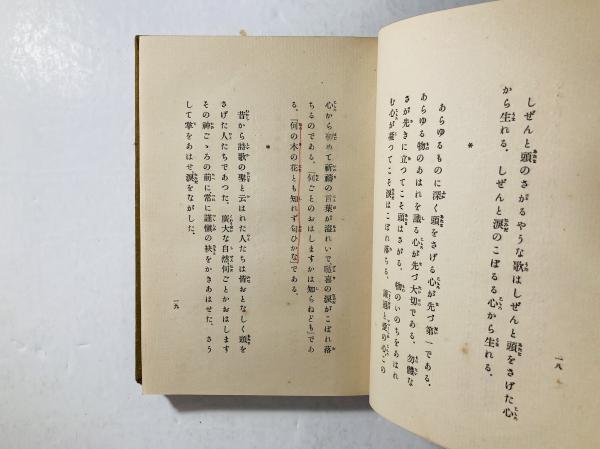 しぜんと頭のさがるやうな歌はしぜんと頭をさげた心
から生れる。しぜんと涙のこぼるる心から生れる。
*
あらゆるものに深く頭をさげる心が先づ第一である。
あらゆる物のあはれを識る心が先づ大切である。勿體な
さが先きに立つてこそ頭はさがる。物のいのちをあはれ
む心が凝つてこそ涙はこぼれ落ちる。謙遜と愛の心、この
一八
心から初めて祈禱の言葉が溢れいで、隨喜の涙がこぼれ落
ちるのである。「何ごとのおはしますかは知らねども」であ
る。「何の木の花とも知れず匂ひかな」である。
*
昔から詩歌の聖と云はれた人たちは皆おとなしく頭を
さげた人たちであつた。廣大な自然何ごとかおはします
その神ごゝろの前に常に謹愼の袂をかきあはせた。さう
して掌をあはせ涙をながした。
一九